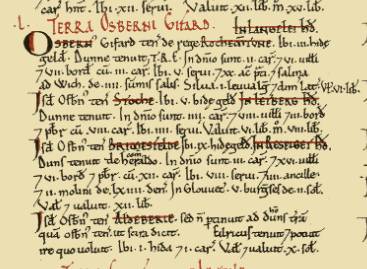 car̃ hm̃t. lib̃i. xii. serui. Valuit. xii. lib̃. m̊. xv. lib̃.
.L. TERRA OSBERNI GIFARD. IN LANGELEI HD̃.
OSBERN' Gifard ten̄ de rege ROCHEMTUNE. Ibi. iii. hidæ
geld̃. Dunne tenuit. T.R.E. In dn̄io sunt. ii. car̃. 7 vi. uiłłi
7 viii. bord̃ cū. iii. car̃. Ibi. v. serui. 7 xx. ac̃ p̃ti. 7 salina
ad Wich. de. iiii. sūmis salis. Silua. i. leuua lg̃ 7 dim̃ lat̃. Vał. vi. lib̃.
Isd̃ Osbn̄ ten̄ STOCHE. Ibi. v. hidæ geld̃. IN LEDBERG HD̃.
Dunne tenuit. In dn̄io sunt. iiii. car̃. 7 viii. uiłłi 7 iii. bord̃
7 p̃br̃ cū. viii. car̃. Ibi. iiii. serui. Valuit. vi. lib̃. m̊. viii. lib̃.
Isd̃ Osbn̄ ten̄ BRIMESFELDE. Ibi. ix. hidæ geld̃.
Duns tenuit de heraldo. In dn̄io sunt. iii. car̃. 7 xvi. uiłłi
7 vi. bord̃ 7 p̃br̃ cū. xii. car̃. Ibi. viii. serui. 7 iiii. ancillæ.
7 ii. molini de. lxiiii. den̄. In Glouuec̃. v. burgenses de. ii. soł.
Vał 7 ualuit. xii. lib̃.
Isd̃ Osbn̄ ten̄ ALDEBERIE. sed n̄ ptinuit ad Duns tr̃ā
quā osbn̄ ten̄ ut scira dicit. Eduicus tenuit 7 potuit
ire quo uoluit. Ibi. i. hida 7 i. car̃. Vał 7 ualuit. x. soł.